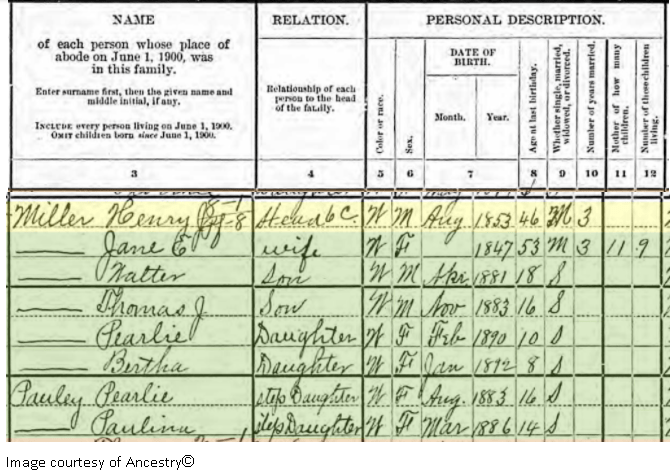 NAME
of each person whose place of
abode on June 1, 1900, was
in this family.
Enter surname first, then the given name and
middle initial, if any.
INCLUDE every person living on June 1, 1900.
OMIT children born since June 1, 1900.
RELATION.
Relationship of each
person to the head
of the family.
PERSONAL DESCRIPTION.
Color or race.
Sex.
DATE OF
BIRTH.
Month. Year.
Age at last birthday.
Whether single, married,
widowed, or divorced.
Number of years married.
Mother of how many
children.
Number of these children
living.
3 4 5 6 7 8 9 10 11 12
Miller Henry Head W M Aug 1853 46 M 3
Jane E wife W F 1847 53 M 3 11 9
Walter Son W M 1881 18 S
Thomas J. Son W M Nov 1883 16 S
Pearlie Daughter W F Feb 1890 10 S
Bertha Daughter W F Jan 1892 8 S
Pauley Pearlie step Daughter W F Aug. 1883 16 S
Paulina step Daughter W F Mar 1886 14 S
Image courtesy of Ancestry©